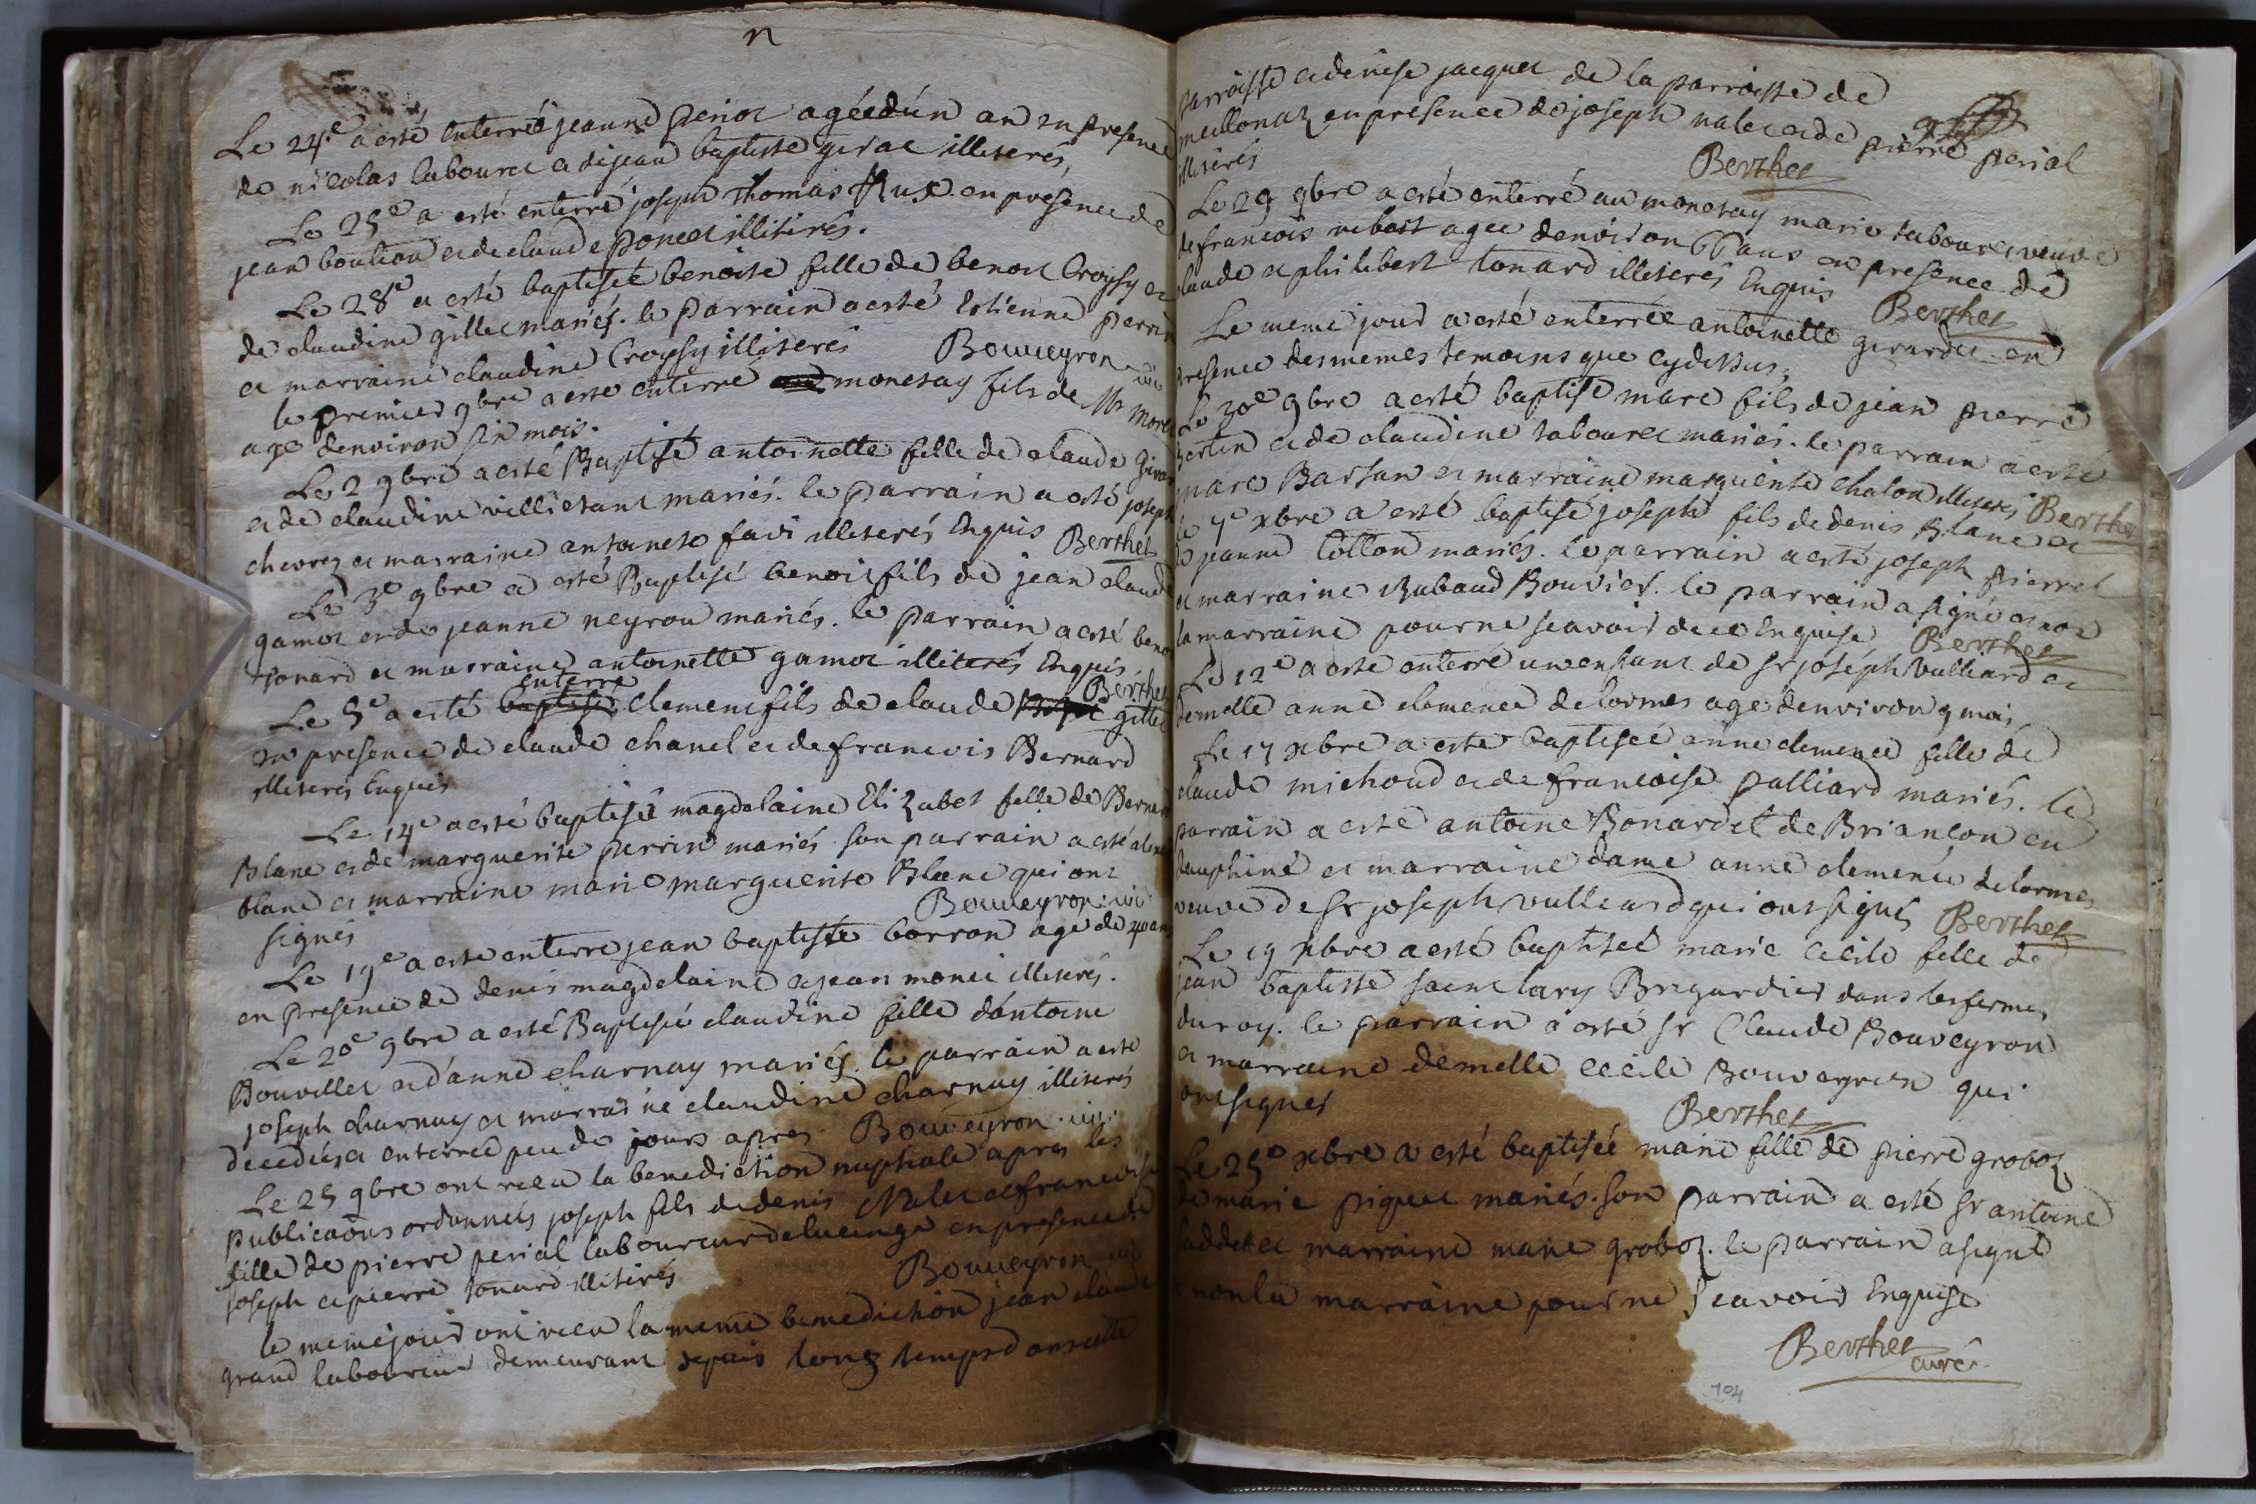 n
Le 24e a esté enterré jeanne perior agée d'un an en presence
de nicolas labouret et de jean baptiste girac illiterés
Le 25e a esté enterré joseph thomas Rux en presence de
jean boulion et de claude poncet illiterés.
Le 28e a esté baptisée benoite fille de benoit Croysy et
de claudine gillet mariés. le parrain a esté Estienne perrin
et marraine claudine Croysy illiterés Bouveyron vic
le premier 9bre a esté enterré monetay fils de Mr
age denviron six mois.
Le 2 9bre a esté Baptisé antoinette fille de claude
et de claudine villietant mariés. le parrain a esté joseph
chevrez et marraine antoinete favi illiterés Enquis Berthet
Le 3e 9bre a esté Baptisé benoit fils de jean claude
gamot et de jeanne neyrou mariés. le parrain a esté
tonard et marraine antoinette gamot illiterés Enquis
Berthet
enterré
Le 5e a esté baptisé clement fils de claude gillet
en presence de claude chanel et de francois Bernard
illiterés Enquis
Le 14e a esté baptisée magdelaine Elizabet fille de
Blanc et de marguerite perrin mariés son parrain a esté
blanc et marraine marie marguerite Blanc qui ont
signés Bouveyron vic
Le 19e a esté enterré jean baptiste borron age de 40 ans
en presence de denis magdelaine et jean monet illiterés.
Le 20e 9bre a esté Baptisée claudine fille dantoine
Bouvillet et d'anne charnay mariés. le parrain a esté
joseph charnay et marraine claudine charnay illiterés
decedée et enterrée peu de jours apres Bouveyron vic.
Le 25 9bre ont receu la benediction nuptiale apres les
publications ordonnées joseph fils de denis Nalet et francoise
fille de pierre perial laboureur delucinge en presence de
joseph et pierre tonard illiterés Bouveyron vic
le meme jour ont receu la meme benediction jean claude
grand laboureur demeurant depuis long temps dans cette
parroisse et denise jacquet de la parroisse de
meillonaz en presence de joseph nalet et de pierre perial
illiterés Berthet
Le 29 9bre a esté enterré au monetay marie tabouret veuve
de francois rebost agee denviron ans en presence de
claude et philibert tonard illiterés Enquis Berthet
Le meme jour a esté enterrée antoinette girardet en
presence des memes temoins que cydessus.
Le 30e 9bre a esté baptisé marc fils de jean pierre
Bertin et de claudine tabouret mariés. le parrain a esté
marc Barsan et marraine marguerite chalon illiterés Berthet
le 7e xbre a esté baptisé joseph fils de denis Blanc et
de jeanne Collon mariés. le parrain a esté joseph pierret
et marraine Rubaud Bouvier. le parrain a signé et non
la marraine pour ne scavoir de ce Enquise Berthet
Le 12e a esté enterré un enfant de Sr joseph Vulliard et
demelle anne clemence delormes agé denviron 9 mois
Le 17 xbre a esté baptisée anne clemence fille de
claude michoud et de francoise palliard mariés. le
parrain a esté antoine Bonardel de Briancon en
dauphiné et marraine dame anne clemence delormes
veuve de Sr joseph vulliard qui ont signés Berthet
Le 19 xbre a esté baptisée marie cecile fille de
jean baptiste saint lary Brigardier dans les fermes
du roy. le parrain a esté Sr Claude Bouveyron
et marraine demelle cecile Bouveyron qui
ont signés Berthet
Le 25e xbre a esté baptisée marie fille de pierre groboz
de marie piquet mariés. son parrain a esté Sr antoine
et marraine marie groboz. le parrain a signé
et non la marraine pour ne scavoir Enquise
Berthet
curé
104